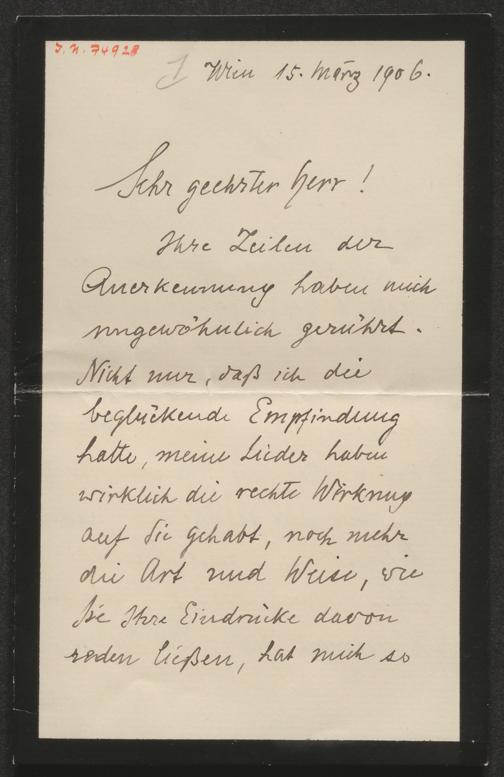 J.N. 74928
1 Wien 15. März 1906.
Sehr geehrter Herr!
Ihre Zeilen der
Anerkennung haben mich
ungewöhnlich gerührt.
Nicht nur, daß ich die
beglückende Empfindung
hatte, meine Lieder haben
wirklich die rechte Wirkung
auf Sie gehabt, noch mehr
die Art und Weise, wie
Sie Ihre Eindrücke davon
reden ließen, hat mich so